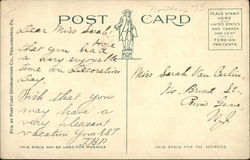 POST CARD
PLACE STAMP HERE
UNITED STATES AND CANADA
ONE CENT
FOREIGN
TWO CENTS
PUB. BY POST CARD DISTRIBUTING CO., PHILADELPHIA, PA.
Dear Miss Sarah,
I hope
that you had
a very enjoyable
time on Decoration
Day.
Wish that you
may have a
very pleasant
vacation
Miss Sarah Van
No. Broad St.,
N.J.
THIS SPACE MAY BE USED FOR MESSAGE
THIS SPACE FOR ADDRESS ONLY